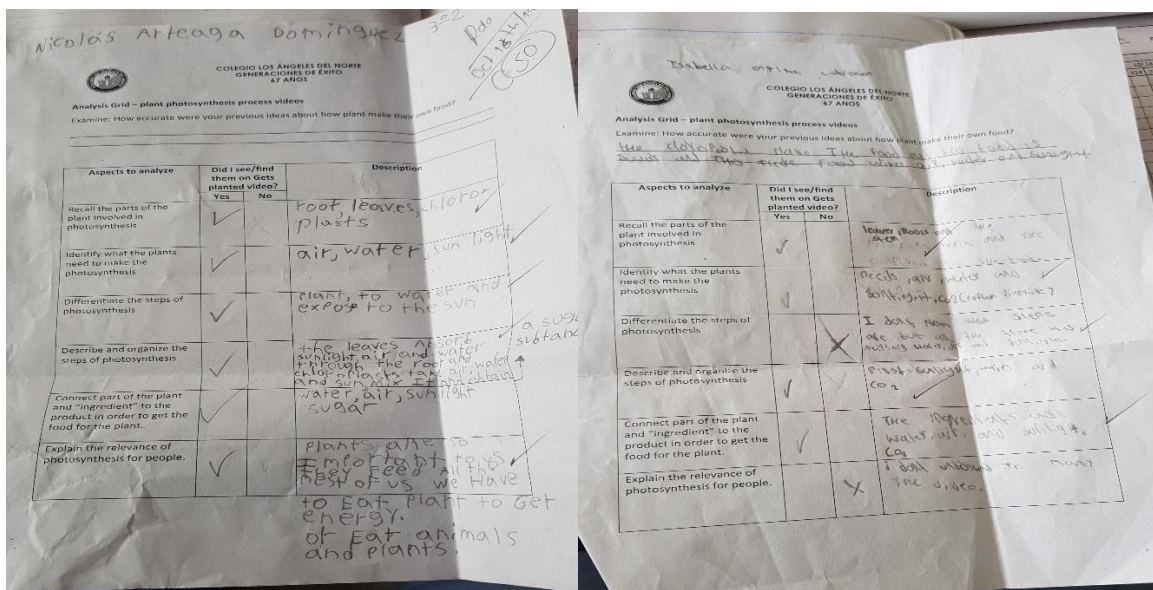 Nicolás Arteaga Dominguez 3º2
Pdo
Oct 18th
50
COLEGIO LOS ÁNGELES DEL NORTE
GENERACIONES DE ÉXITO
67 AÑOS
Analysis Grid – plant photosynthesis process videos
Examine: How accurate were your previous ideas about how plant make their own food?
Aspects to analyze
Did I see/find
them on Gets
planted video?
Yes No
Description
Recall the parts of the
plant involved in
photosynthesis
root, leaves, chloro
plasts
Identify what the plants
need to make the
photosynthesis
air, water, sun light,
Differentiate the steps of
photosynthesis
plant, to water and
expose to the sun
Describe and organize the
steps of photosynthesis
the leaves Absorb
sunlight, air and water
through the root and
chloroplasts take air, water
and sun, mix it and obtain
a suga
subtabc
Connect part of the plant
and "ingredient" to the
product in order to get the
food for the plant.
water, air, sunlight
sugar
Explain the relevance of
photosynthesis for people.
plants are so
Important to us
They Feed All the
Rest of us we Have
to Eat Plant to Get
energy.
or Eat animals
and plants.
Isabella ospina
COLEGIO LOS ÁNGELES DEL NORTE
GENERACIONES DE ÉXITO
67 AÑOS
Analysis Grid – plant photosynthesis process videos
Examine: How accurate were your previous ideas about how plant make their own food?
the Make The food food is
and food water and sunlight
Aspects to analyze
Did I see/find
them on Gets
planted video?
Yes No
Description
Recall the parts of the
plant involved in
photosynthesis
leaves, Roots and
Identify what the plants
need to make the
photosynthesis
needs, air, water and
sunlight, CO2
Differentiate the steps of
photosynthesis
I dont steps
are but
Describe and organize the
steps of photosynthesis
First and
CO2
Connect part of the plant
and "ingredient" to the
product in order to get the
food for the plant.
The ingredients
water, air, and sunligt,
CO2
Explain the relevance of
photosynthesis for people.
i dont
The video.